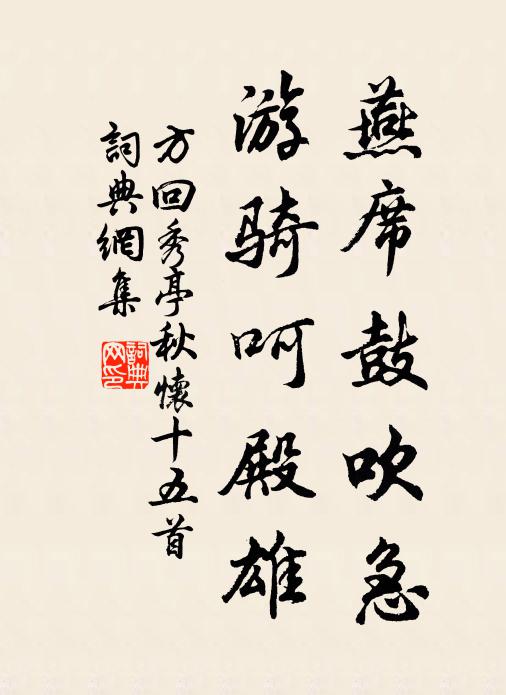 燕席鼓吹急
游骑呵殿雄
方回秀亭秋懷十五首
詞典網集
詞典网印